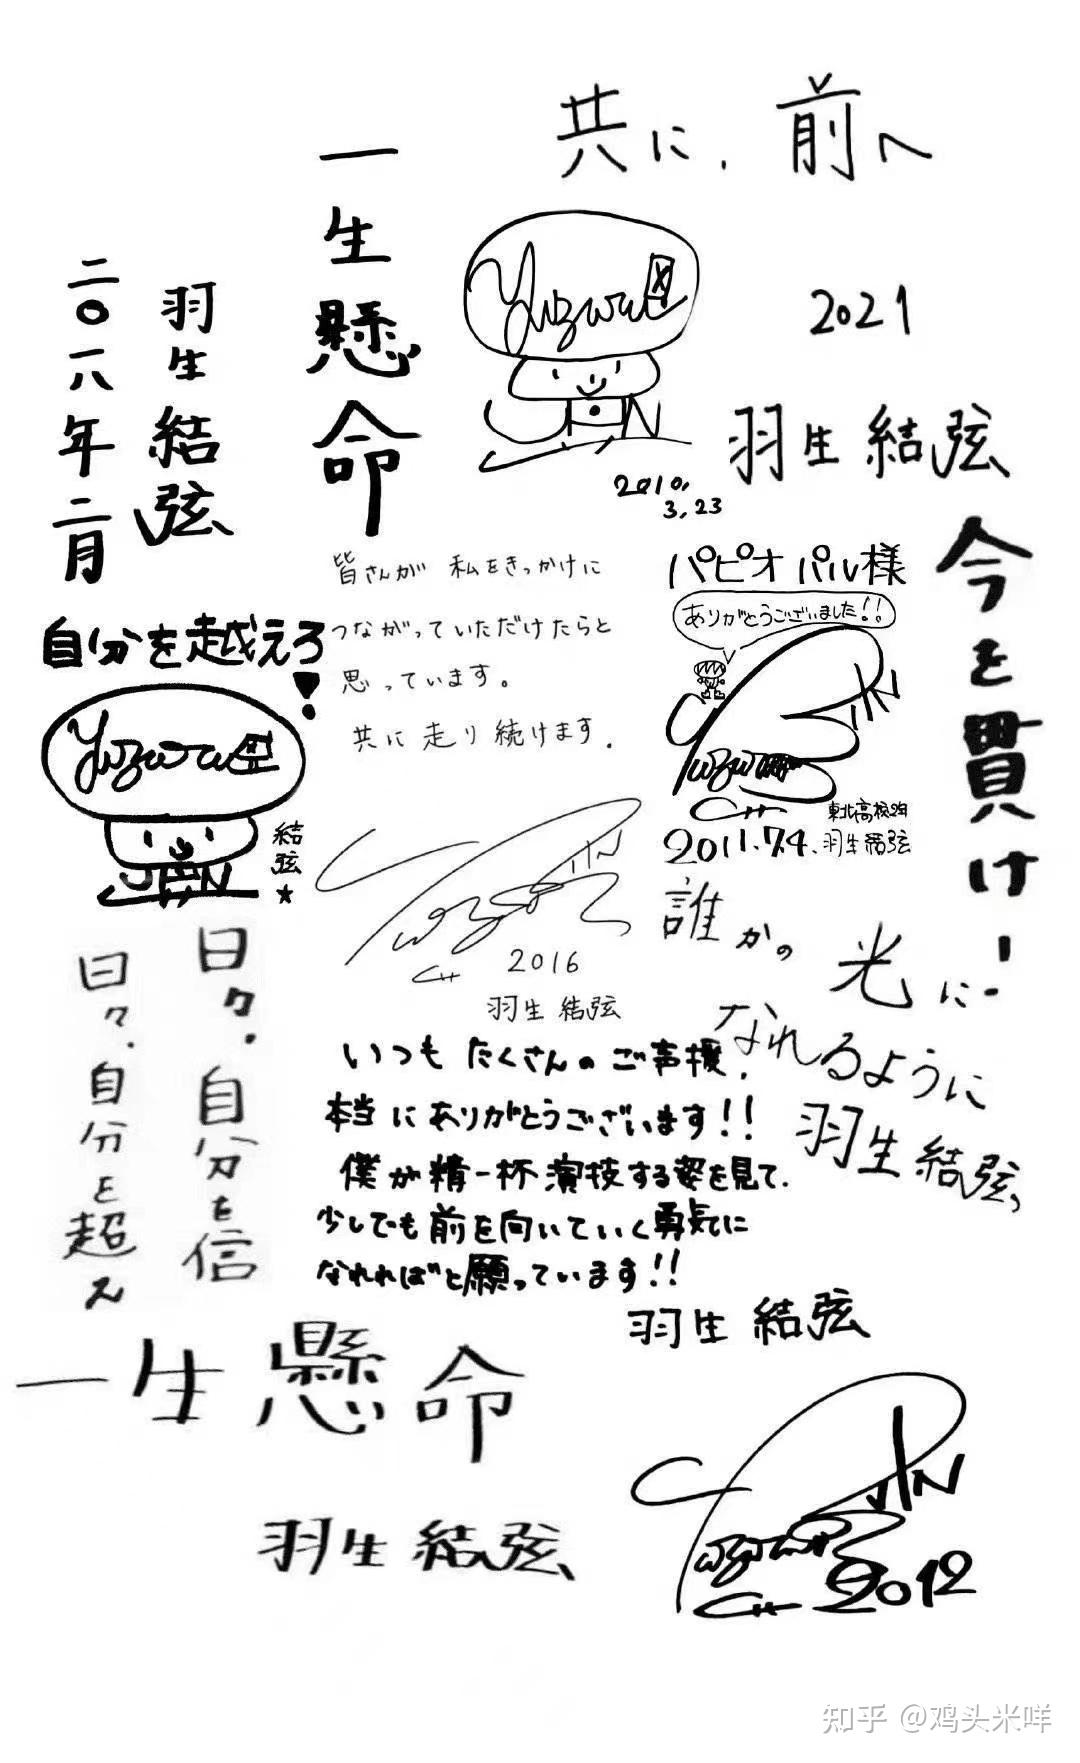 共に、前へ
2021
羽生結弦
一生懸命
羽生結弦
二〇一八年二月
Yuzuru
2010.
3.23
今を貫け!
皆さんが 私をきっかけに
つながっていただけたらと
思っています。
共に走り続けます.
パピオ パル様
ありがとうございました!!
東北高校2年
2011.7.4. 羽生結弦
自分を越えろ!
Yuzuru
結弦★
2016
羽生結弦
誰かの
光に
なれるように
羽生結弦
日々、自分を信
日々、自分を超え
いつも たくさんの ご声援、
本当に ありがとうございます!!
僕が精一杯演技する姿を見て、
少しでも前を向いていく勇気に
なれればと願っています!!
羽生結弦
一生懸命
羽生結弦
2012
知乎 @鸡头米咩